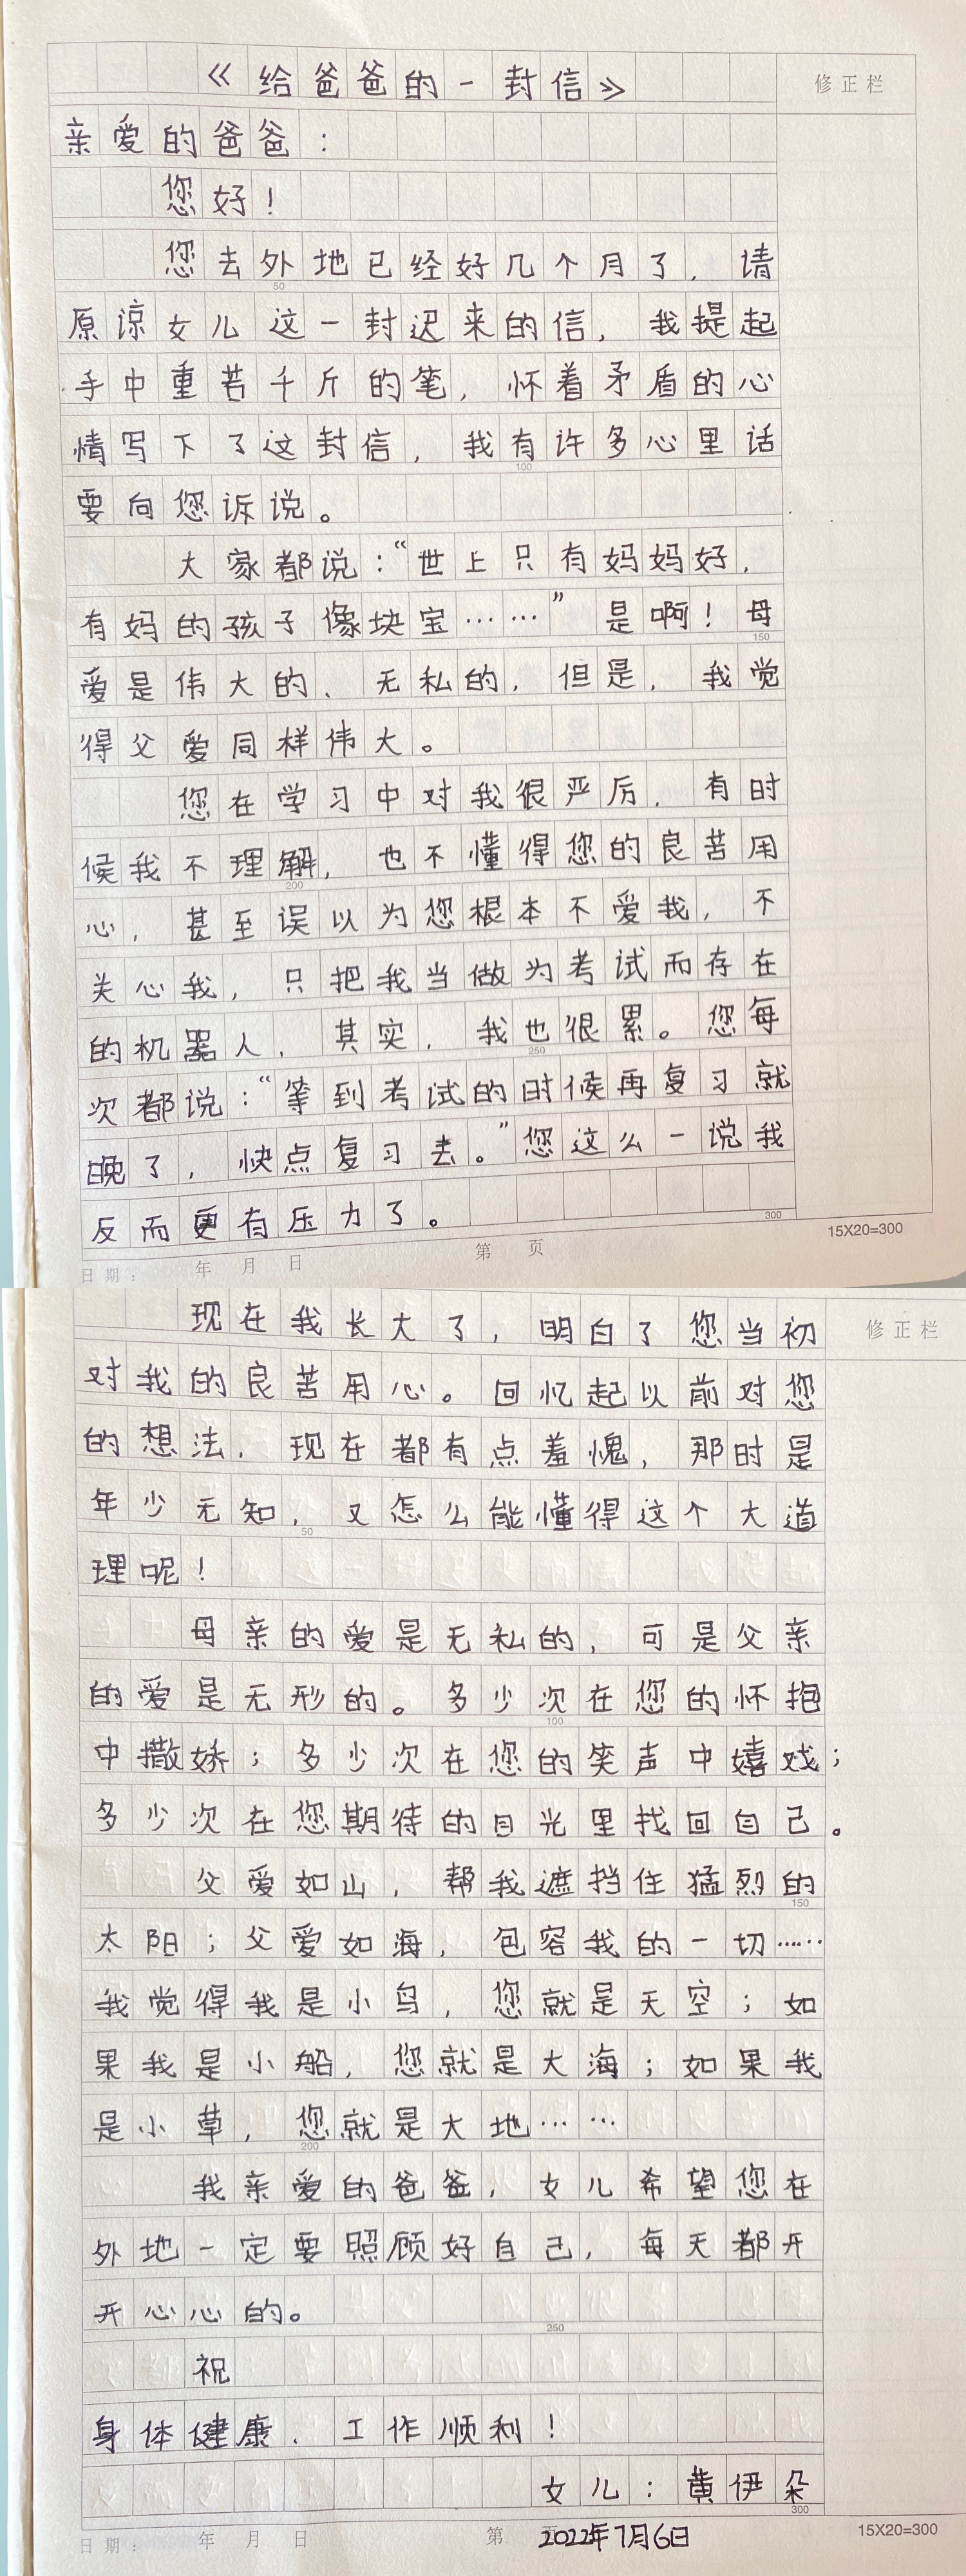 《给爸爸的一封信》
修正栏
亲爱的爸爸：
您好！
您去外地已经好几个月了，请
50
原谅女儿这一封迟来的信，我提起
手中重若千斤的笔，怀着矛盾的心
情写下了这封信，我有许多心里话
100
要向您诉说。
大家都说：“世上只有妈妈好，
有妈的孩子像块宝……”是啊！母
150
爱是伟大的、无私的，但是，我觉
得父爱同样伟大。
您在学习中对我很严厉，有时
候我不理解，也不懂得您的良苦用
200
心，甚至误以为您根本不爱我，不
关心我，只把我当做为考试而存在
的机器人，其实，我也很累。您每
250
次都说：“等到考试的时候再复习就
晚了，快点复习去。”您这么一说我
反而更有压力了。
300
15X20=300
日期： 年 月 日 第 页
现在我长大了，明白了您当初
修正栏
对我的良苦用心。回忆起以前对您
的想法，现在都有点羞愧，那时是
年少无知，又怎么能懂得这个大道
50
理呢！
母亲的爱是无私的，可是父亲
的爱是无形的。多少次在您的怀抱
100
中撒娇；多少次在您的笑声中嬉戏；
多少次在您期待的目光里找回自己。
父爱如山，帮我遮挡住猛烈的
150
太阳；父爱如海，包容我的一切……
我觉得我是小鸟，您就是天空；如
果我是小船，您就是大海；如果我
是小草，您就是大地……
200
我亲爱的爸爸，女儿希望您在
外地一定要照顾好自己，每天都开
开心心的。
250
祝
身体健康、工作顺利！
女儿：黄伊朵
300
日期： 年 月 日 第 页
2022年7月6日
15X20=300